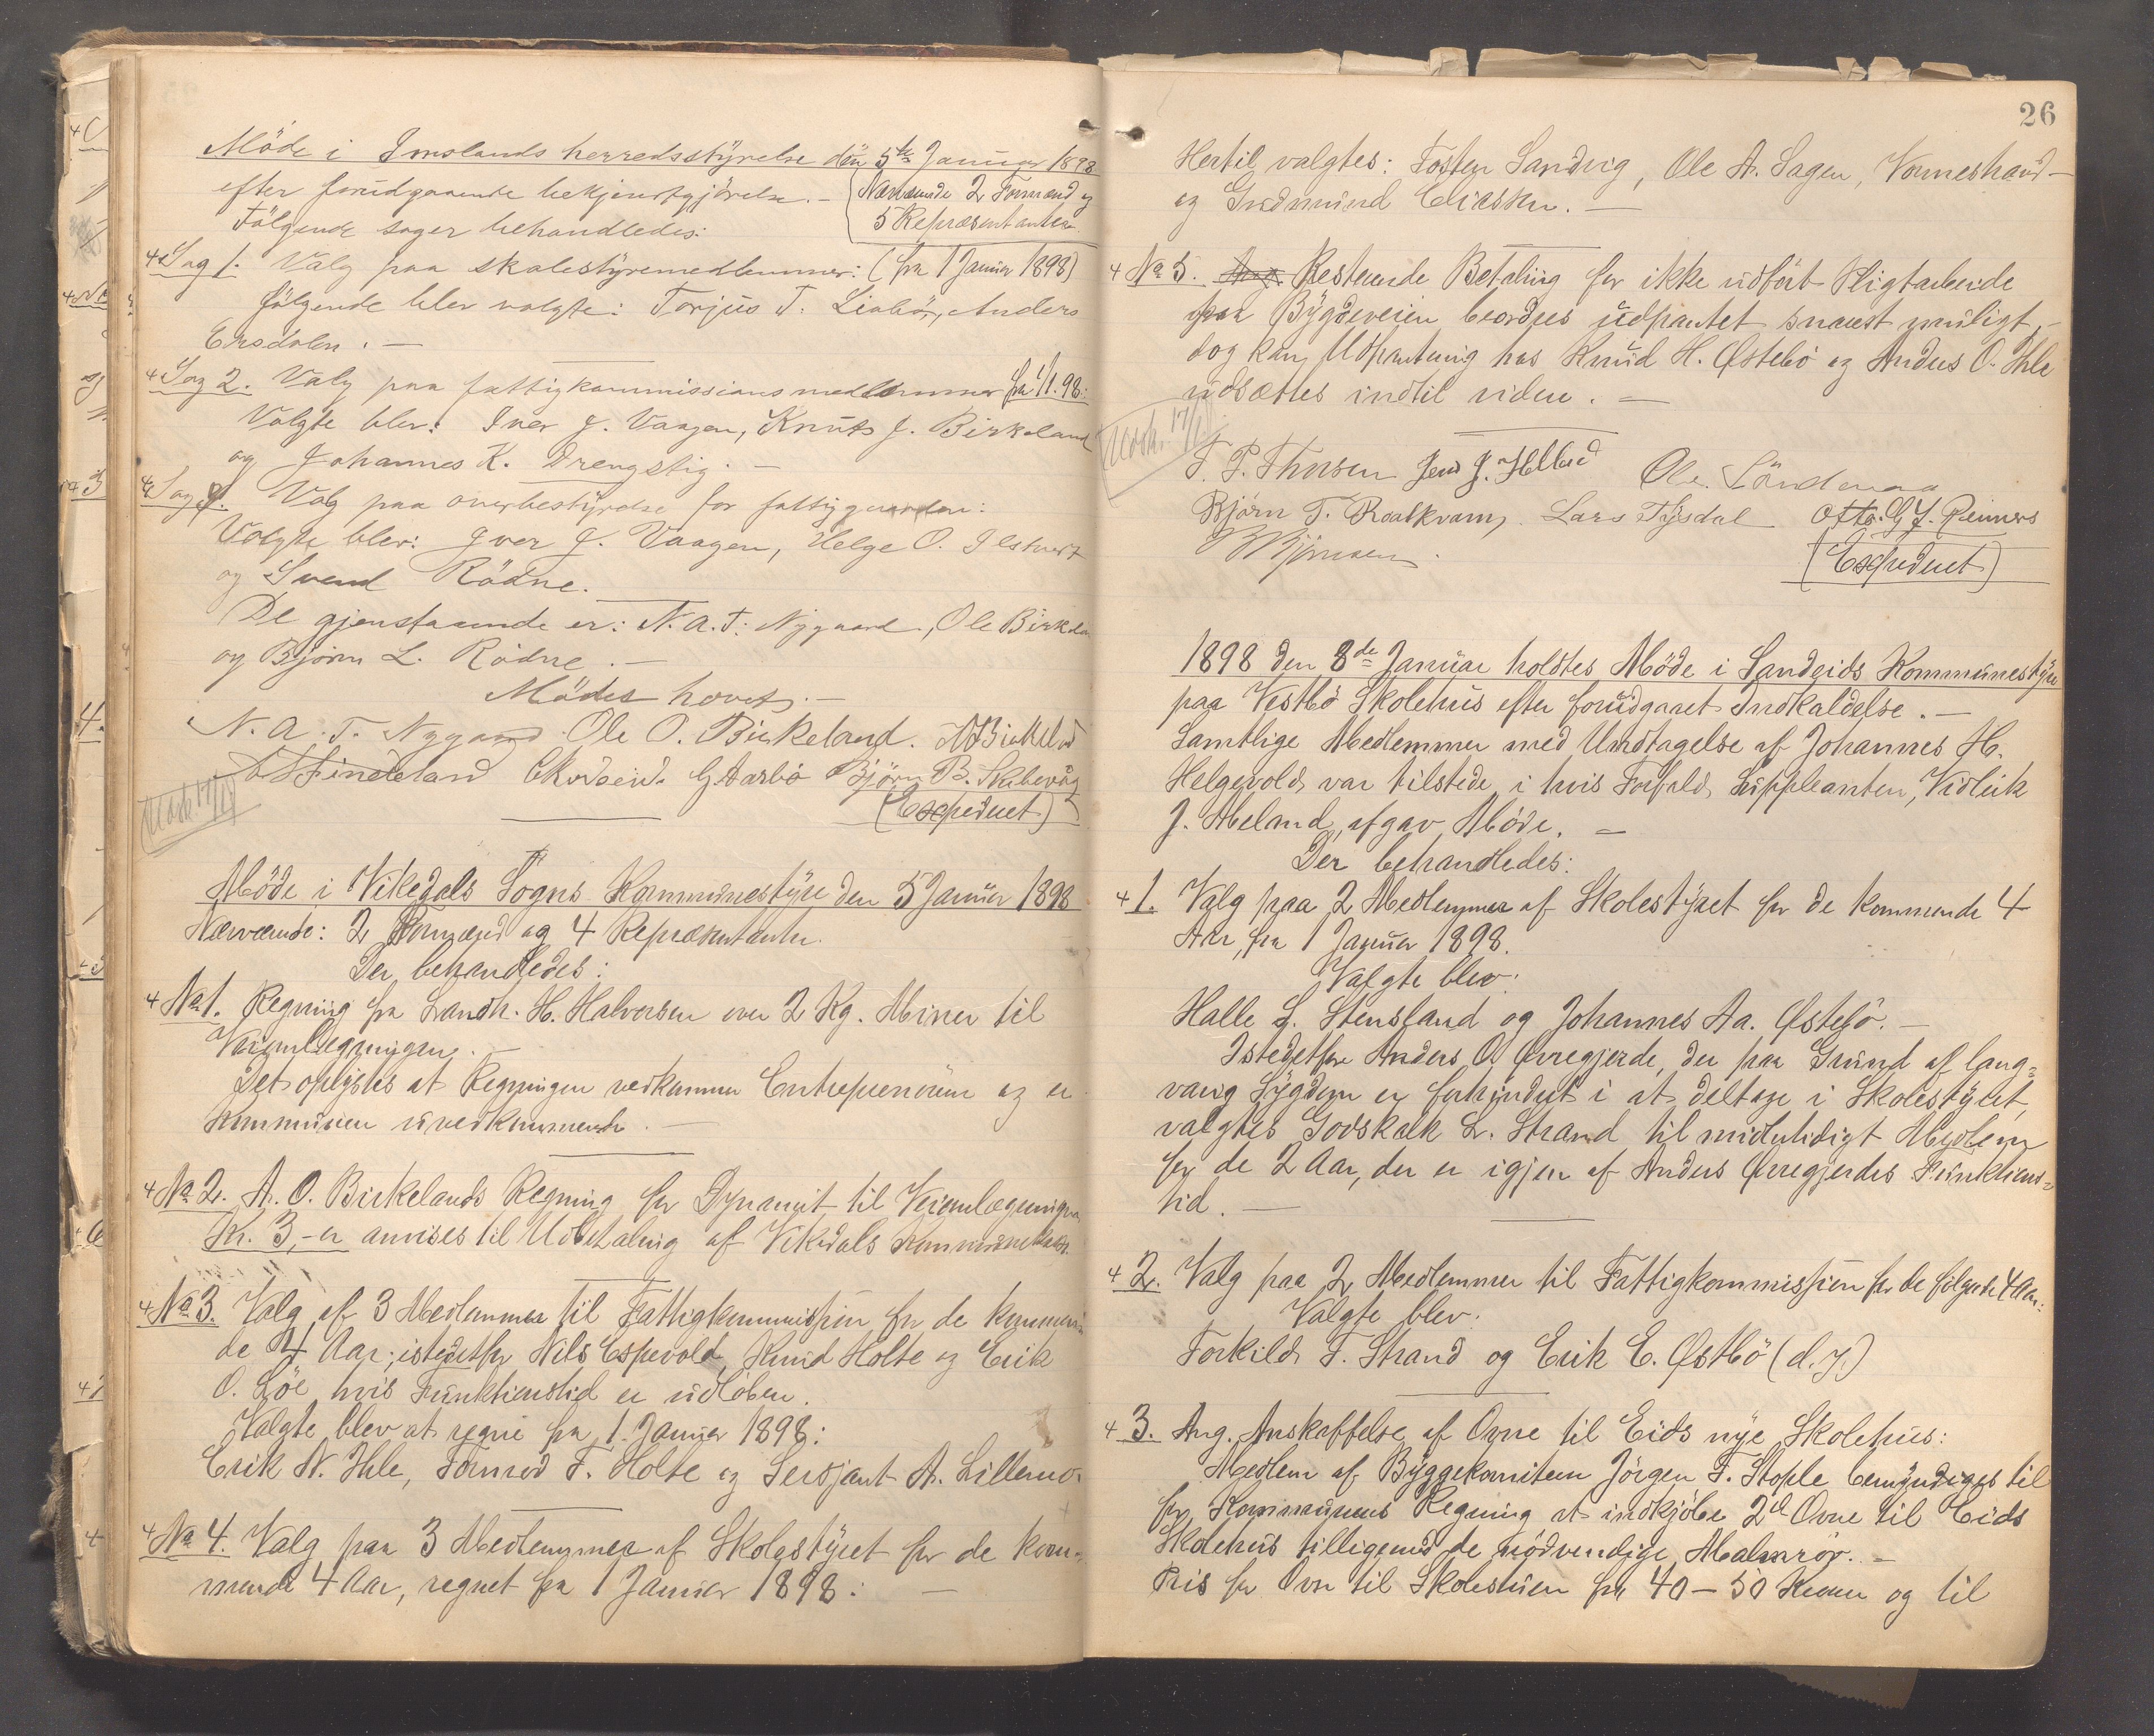 Möde i Imslands herredsstyrelse den 5te Januar 1898
efter forudgaaende bekjentgjörelse. — Nærværende 2 Formænd og
Følgende sager behandledes: 5 Repræsentanter.
Sag 1. Valg paa skolestyremedlemmer: (fra 1 Januar 1898)
følgende blev valgte: Torjus T. Liabö, Anders
Ersdalen. —
Sag 2. Valg paa fattigkommissionsmedlemmer fra 1/1. 98:
Valgte blev: Iver J. Vaagen, Knut J. Birkeland
og Johannes K. Drengstig. —
Sag 3. Valg paa overbestyrelse for fattiggaarden:
Valgte blev: Iver J. Vaagen, Helge O.
og Svend Rödne.
De gjenstaaende er: N. A. T. Nygaard, Ole Birkeland
og Björn L. Rödne. —
Mödet hævet. —
N. A. T. Nygaard Ole O. Birkeland.
G Aarbö Björn B. Skibevåg
(Expederet)
Möde i Vikedals Sogns Kommunestyre den 5 Januar 1898
Nærværende: 2 Formænd og 4 Repræsentanter.
Der behandledes:
No 1. Regning fra Landh. H. Halvorsen over 2 Kg. Miner til
Veiomlægningen. —
Det oplystes at Regningen vedkommer Entreprenören og er
Kommunen uvedkommende. —
No 2. A. O. Birkelands Regning for Dynamit til Veiomlægningen
Kr. 3,- er anvises til Udbetaling af Vikedals Kommunekasse.
No 3. Valg af 3 Medlemmer til Fattigkommissjon for de kommen
de 4 Aar; istedetfor Nils Espevold, Knud Holte og Erik
O. Löe hvis Funktionstid er udlöben.
Valgte blev at regne fra 1. Januar 1898:
Erik N. Ihle, Tormod T. Holte og Sersjant A. Lillemo.
No 4. Valg paa 3 Medlemmer af Skolestyret for de kom-
mende 4 Aar, regnet fra 1 Januar 1898: —
26
Hertil valgtes: Tosten Sandvig, Ole A. Sagen,
og Gudmund Eliassen. —
No 5. Resterende Betaling for ikke udfört Pligtarbeide
paa Bygdeveien beordres udpantet snarest muligt, -
dog kan Udpantning hos Knud H. Østebö og Anders O. Ihle
udsættes indtil videre. —
T. P. Thorsen Jens J. Helland Ole Söndenaa
Björn T. Roalkvam, Lars Tysdal Otto. G. J. Reimers
(Expederet)
1898 den 8de Januar holdtes Möde i Sandeids Kommunestyre
paa Vestbö Skolehus efter forudgaaet Indkaldelse. —
Samtlige Medlemmer med Undtagelse af Johannes H.
Helgevold, var tilstede, i hvis Forfald, Suppleanten, Vidleik
J. Meland, afgav Möde. —
Der behandledes:
1. Valg paa 2 Medlemmer af Skolestyret for de kommende 4
Aar, fra 1 Januar 1898.
Valgte blev:
Halle L. Stensland og Johannes Aa. Østebö. —
Istedetfor Anders O. Øvregjerde, der paa Grund af lang=
varig Sygdom er forhindret i at deltage i Skolestyret,
valgtes Godskalk L. Strand til midlertidigt Medlem
for de 2 Aar, der er igjen af Anders Øvregjerdes Funktions=
tid. —
2. Valg paa 2 Medlemmer til Fattigkommissjon for de følgende 4 Aar:
Valgte blev:
Torkild T. Strand og Erik E. Østbö (d. y.)
3. Ang. Anskaffelse af Ovne til Eids nye Skolehus:
Medlem af Byggekomiteen Jörgen T. Stople bemyndiges til
for Kommunens Regning at indkjöbe 2de Ovne til Eids
Skolehus tilligemed de nödvendige Malmrör. —
Pris for Ovn til Skolestuen fra 40 — 50 Kroner og til